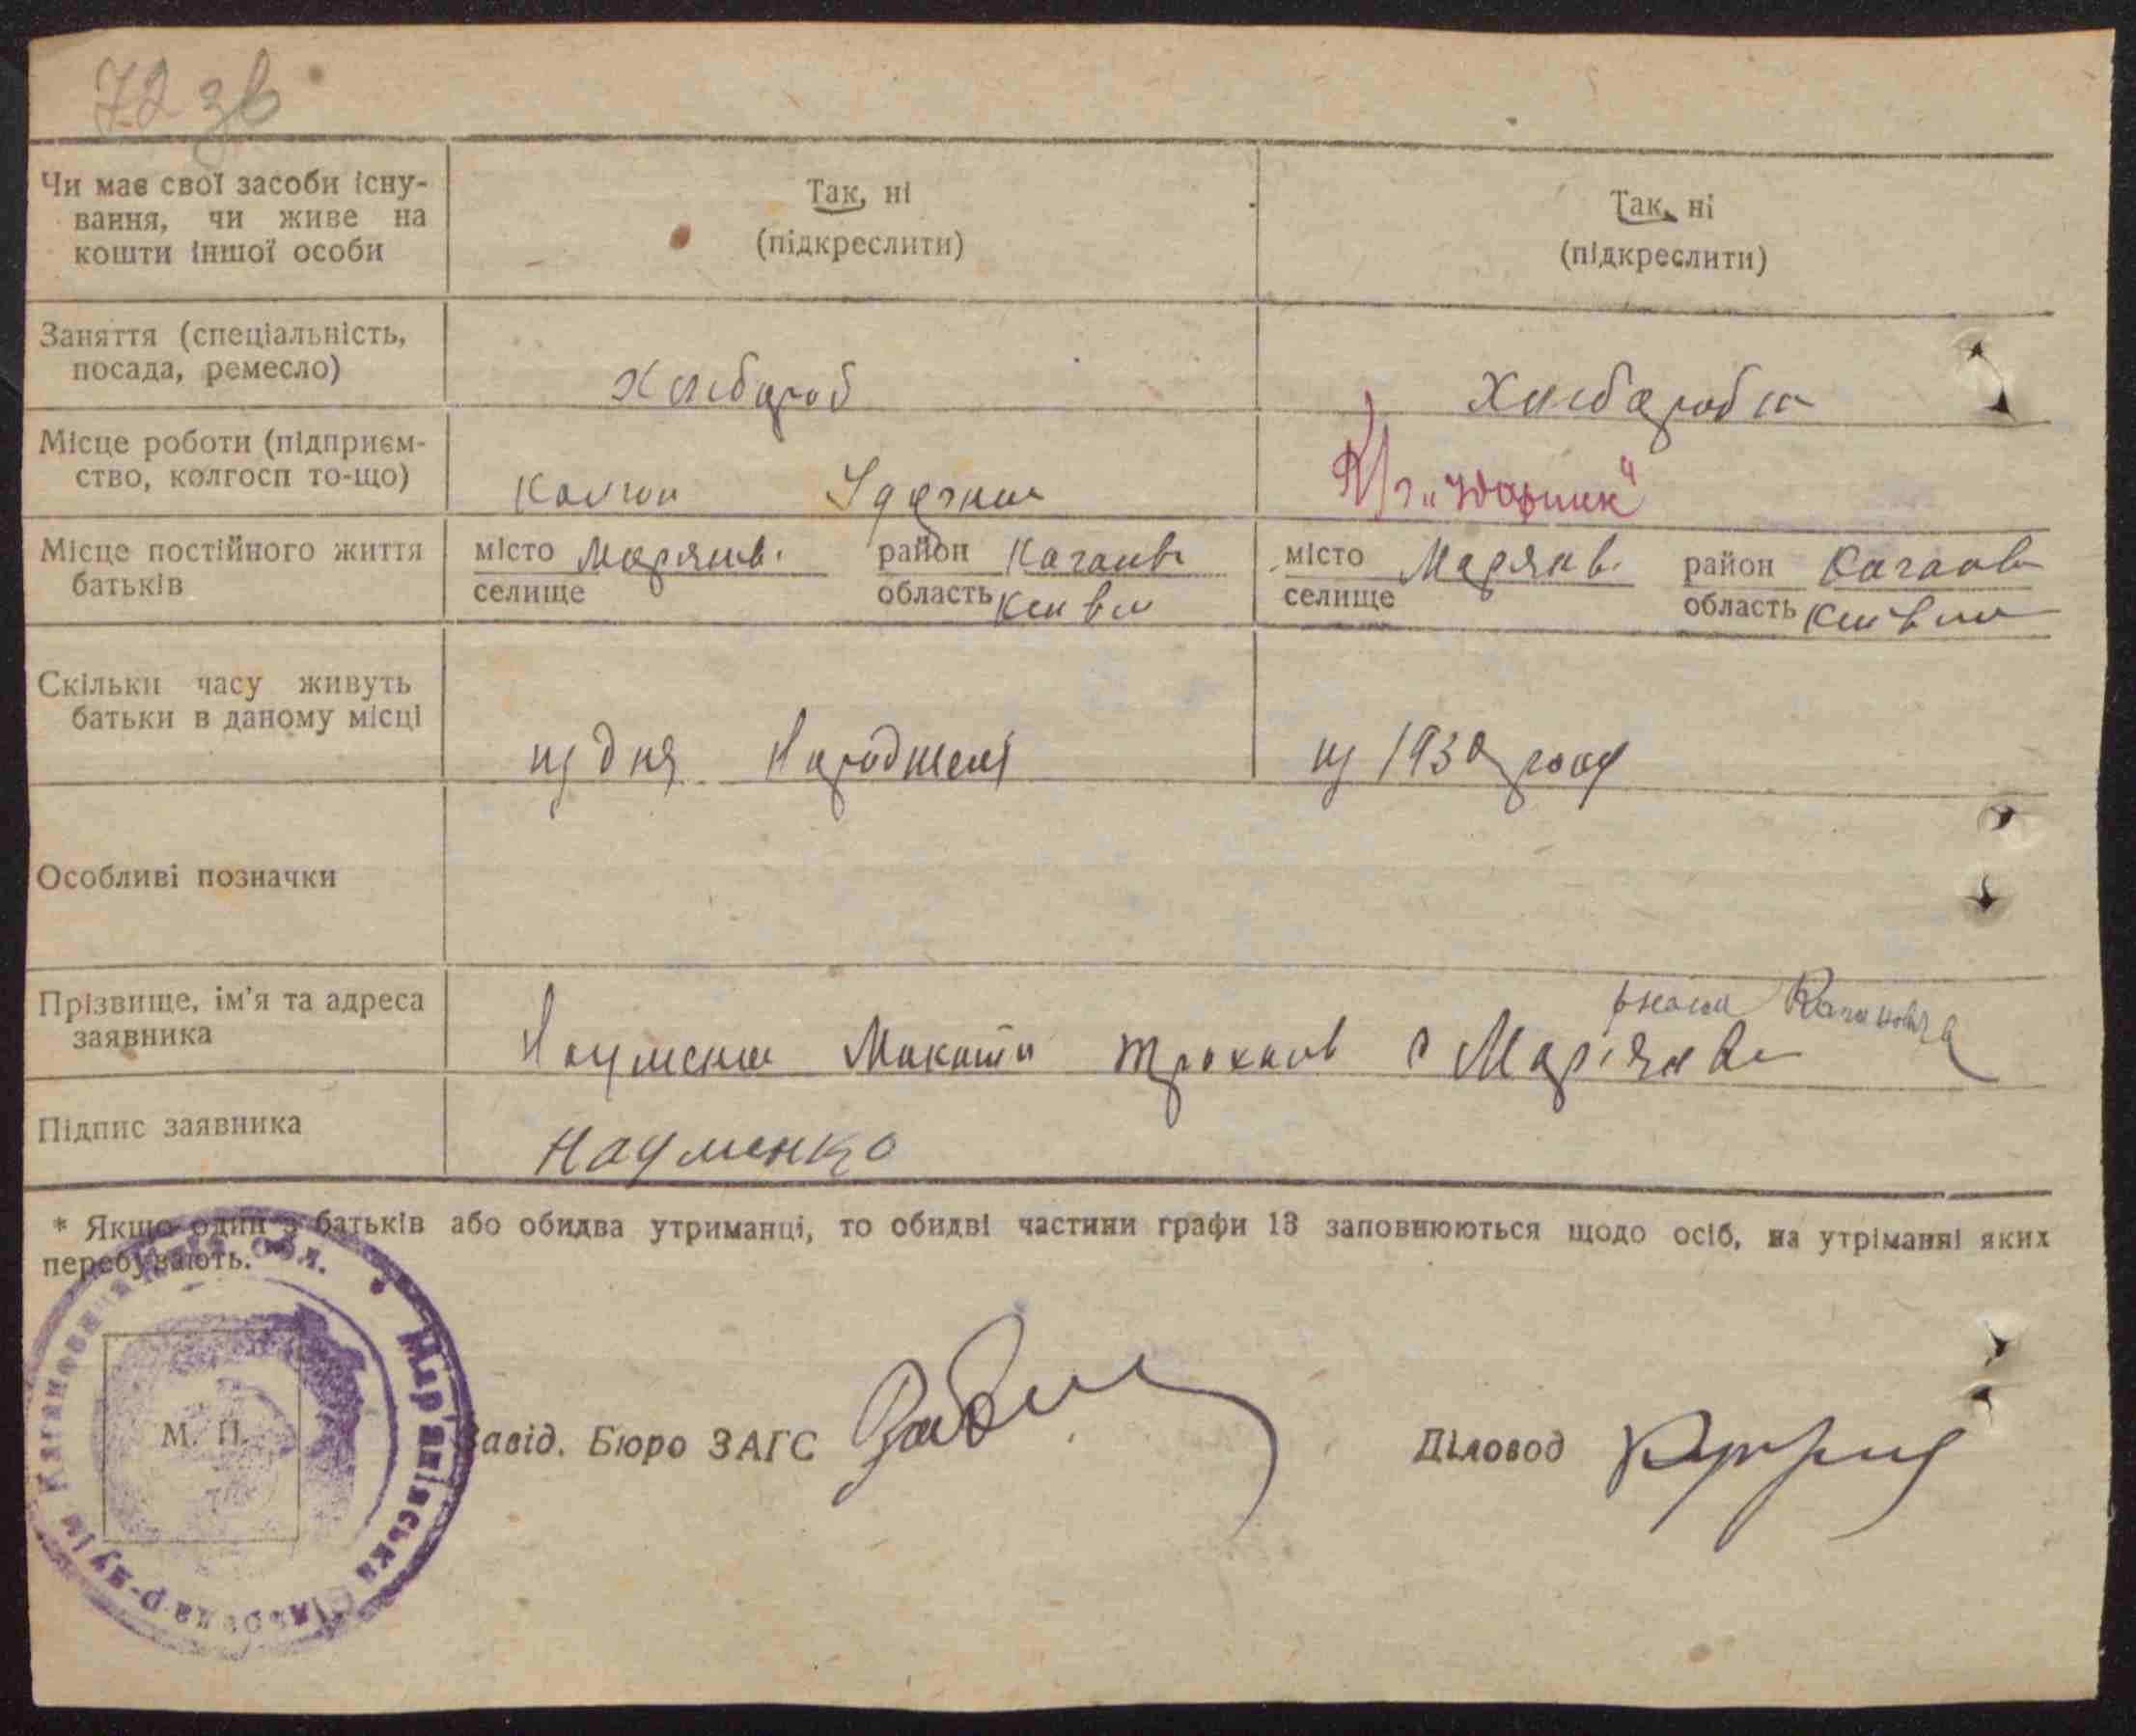 72 зв
Чи має свої засоби існу-
вання, чи живе на
кошти іншої особи
Так, ні
(підкреслити)
Так, ні
(підкреслити)
Заняття (спеціальність,
посада, ремесло)
Хлібороб
Хлібаробка
Місце роботи (підприєм-
ство, колгосп то-що)
Колгосп
К/г "Ударник"
Місце постійного життя
батьків
місто
селище
Марянів.
район Каганов
область Київск
місто
селище
Марянів.
район Каганов
область Київск
Скільки часу живуть
батьки в даному місці
из дня Народженя
из 1930 году
Особливі позначки
Прізвище, ім'я та адреса
заявника
Кагановича
Науменко Микита Трохимов с Мар'янівки
Підпис заявника
Науменко
* Якщо один з батьків або обидва утриманці, то обидві частини графи 13 заповнюються щодо осіб, на утріманні яких
перебувають.
М. П.
Мар'янівська Сільрада р-ну ім Кагановича Київ. обл.
Завід. Бюро ЗАГС
Діловод